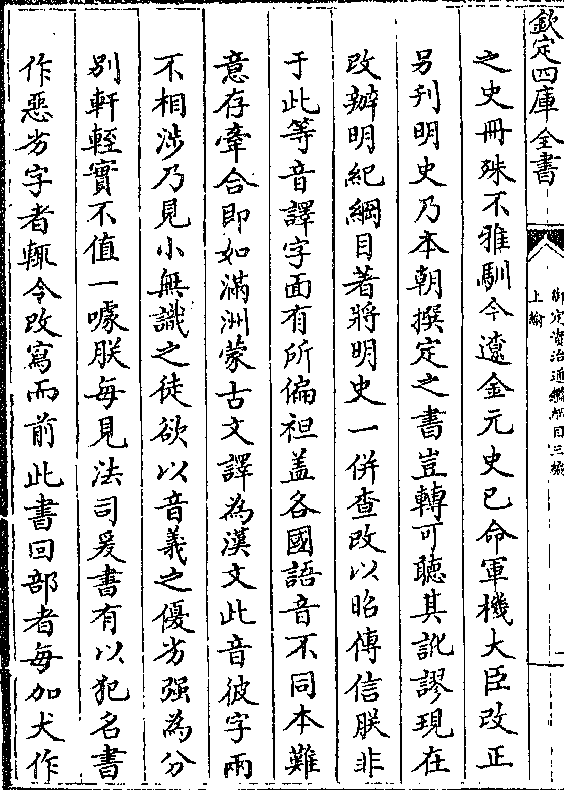 欽定四庫全書
御定資治通鑑綱目三編
上諭
之史冊殊不雅馴今遼金元史已命軍機大臣改正
另刋明史乃本朝撰定之書豈轉可聽其訛謬現在
改辦明紀綱目著將明史一併查改以昭傳信朕非
于此等音譯字面有所偏袒盖各國語音不同本難
意存牽合即如滿洲蒙古文譯為漢文此音彼字兩
不相涉乃見小無識之徒欲以音義之優劣强為分
别軒輊實不值一噱朕每見法司爰書有以犯名書
作惡劣字者輙令改寫而前此書回部者每加犬作